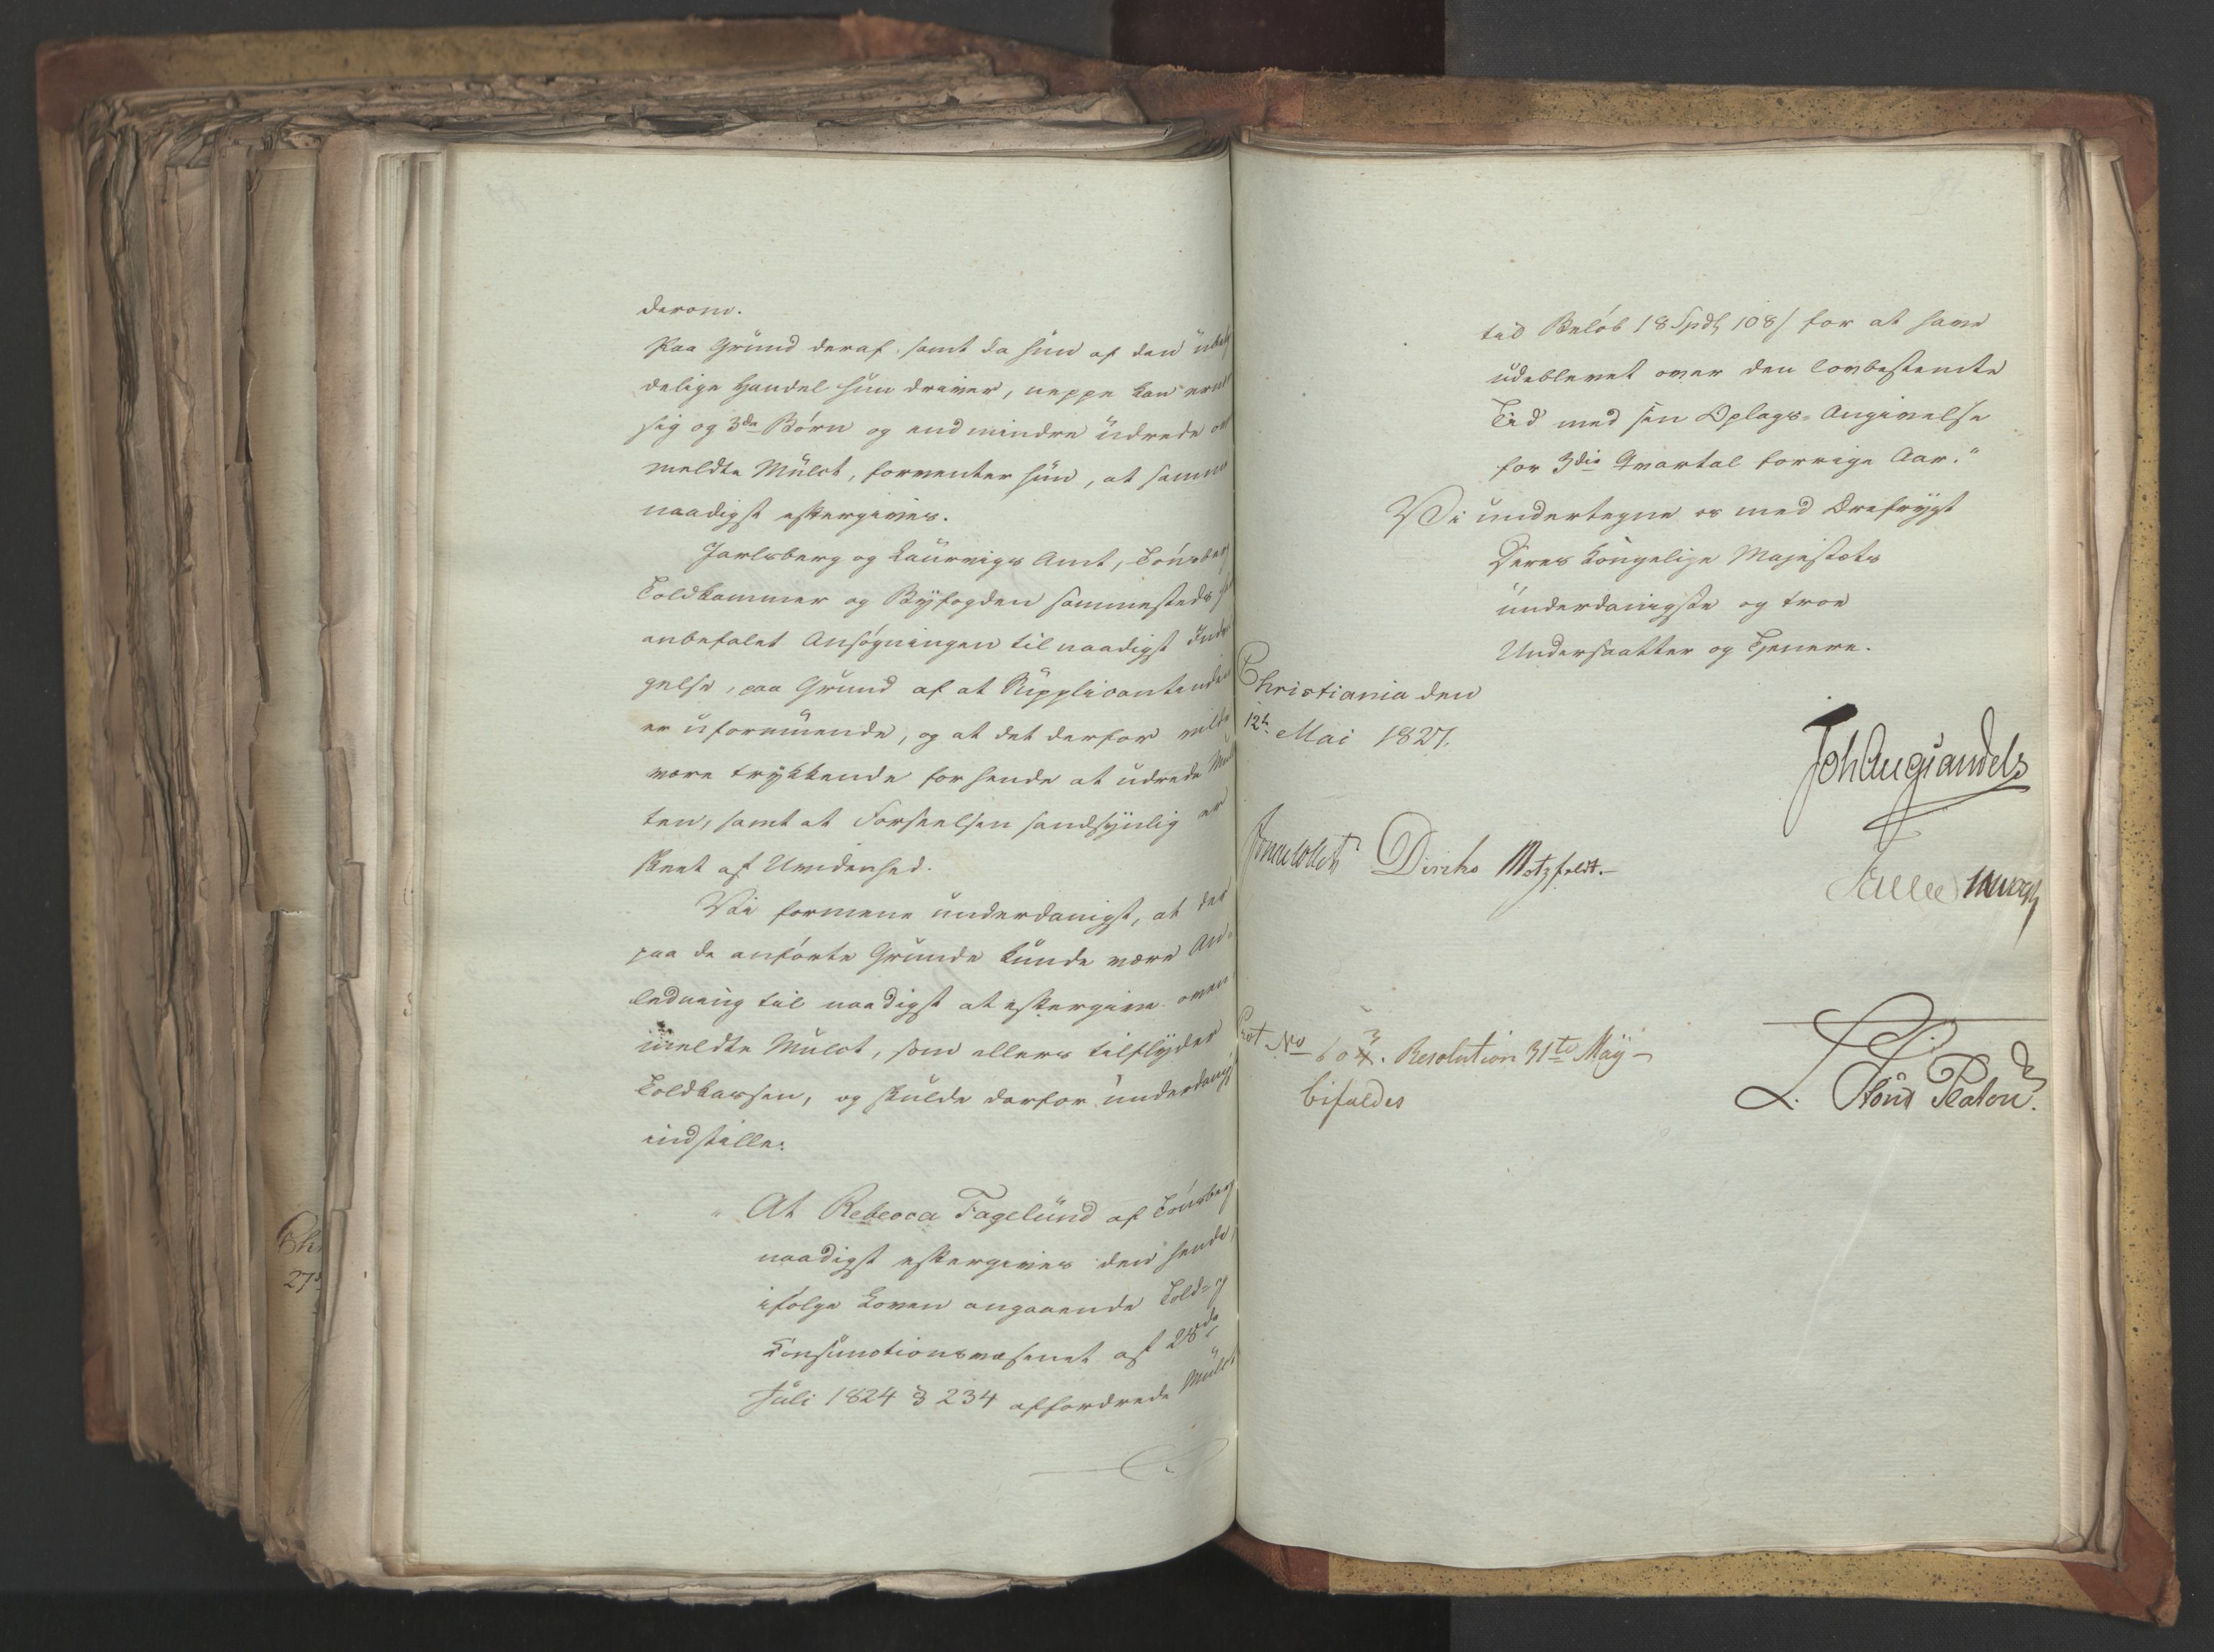 derom.
Paa Grund deraf samt da hun af den ubety
delige Handel hun driver, neppe kan ernære
sig og 3de Børn og end mindre udrede oven
meldte Mulct, formenter hun, at samme
naadigst eftergives.
Jarlsberg og Laurvigs Amt, Tønsberg
Toldkammer og Byfogden sammesteds
anbefalet Ansøgningen til naadigst Bøn-
hørelse, paa Grund af at Supplicantinden
er uformuende, og at det derfor vilde
være trykkende for hende at udrede Mulc
ten, samt at Forseelsen sandsynlig er
skeet af Uvidenhed.
Vi formene underdanigst, at der
paa de anførte Grunde kunde være An-
ledning til naadigst at eftergive oven
meldte Mulct, som ellers tilflyder
Toldkassen, og skulde derfor underdanigst
indstille:
"At Rebecca Fagelund af Tønsberg
naadigst eftergives den hende,
ifølge Loven angaaende Told- og
Consumtionsvæsenet af 28de
Juli 1824 § 234 affordrede Mulct
til Beløb 18 Spd 108 s for at have
udeblevet over den lovbestemte
Tid med sin Oplags-Angivelse
for 3die Qvartal forrige Aar."
Vi undertegne os med Ærefrygt
Deres Kongelige Majestæts
underdanigste og troe
Undersaatter og Tjenere.
Christiania den
12te Mai 1827.
Joh Aug Sandels
J Collett Diriks Motzfeldt.
Prot No 603. Resolution 31te May -
bifaldes
L. Stoud Platou.